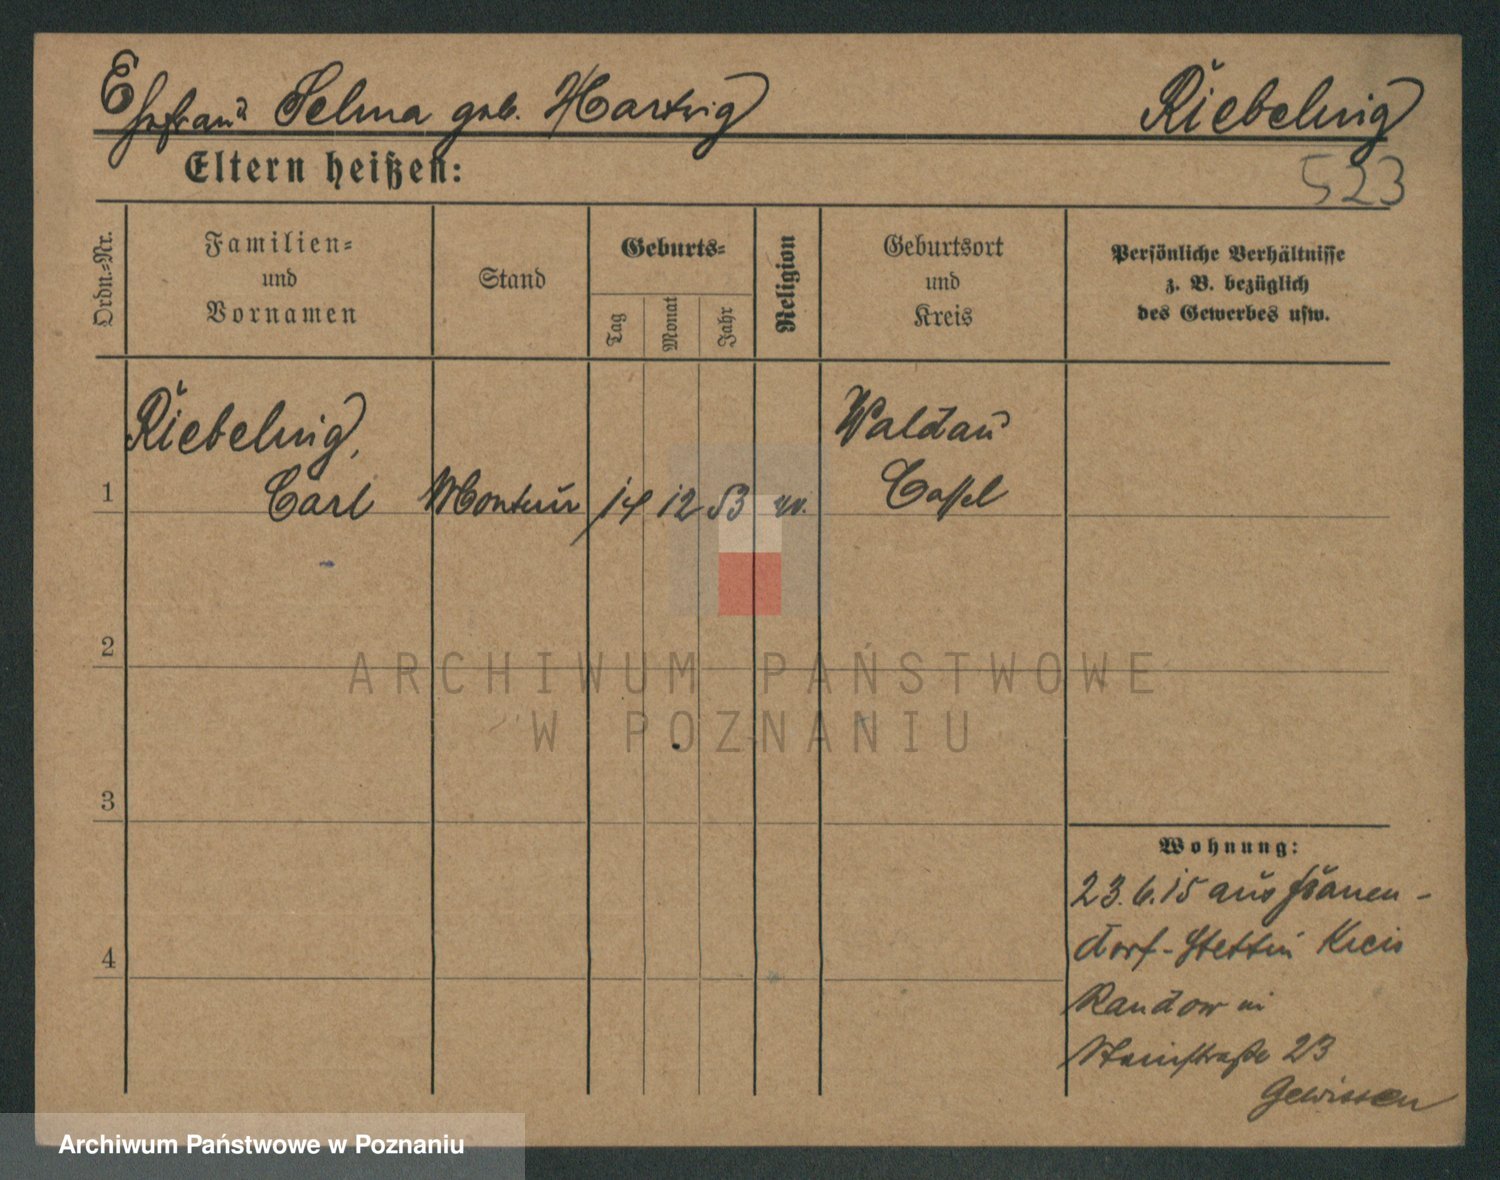 Ehefrau Selma geb. Hartwig Riebeling
523
Eltern heißen:
Ordn.=Nr.
Familien=
und
Vornamen
Stand
Geburts=
Tag
Monat
Jahr
Religion
Geburtsort
und
Kreis
Persönliche Verhältnisse
z. B. bezüglich
des Gewerbes usw.
Riebeling,
Waldau
1 Carl Monteur 14 12 53 ev. Cassel
2
ARCHIWUM PAŃSTWOWE
W POZNANIU
3
Wohnung:
23. 6. 15 aus Frauen-
dorf-Stettin Kreis
4
Randow in
Steinstraße 23
Gewissen
Archiwum Państwowe w Poznaniu